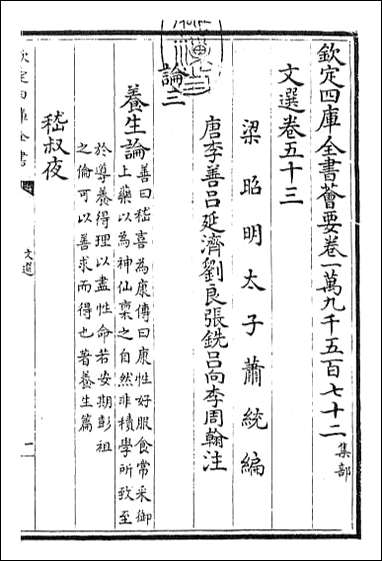 欽定四庫全書薈要卷一萬九千五百七十二 集部
文選卷五十三
梁昭明太子蕭統編
唐李善呂延濟劉良張銑呂向李周翰注
論三
養生論 善曰嵇喜為康傳曰康性好服食常采御
上藥以為神仙稟之自然非積學所致至
於導養得理以盡性命若安期彭祖
之倫可以善求而得也著養生篇
嵇叔夜
欽定四庫全書
文選